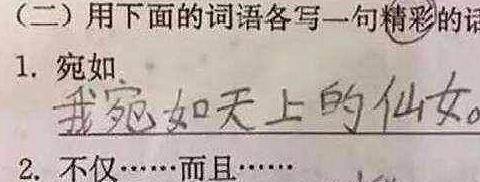 （二）用下面的词语各写一句精彩的话
1. 宛如
我宛如天上的仙女。
2. 不仅……而且……